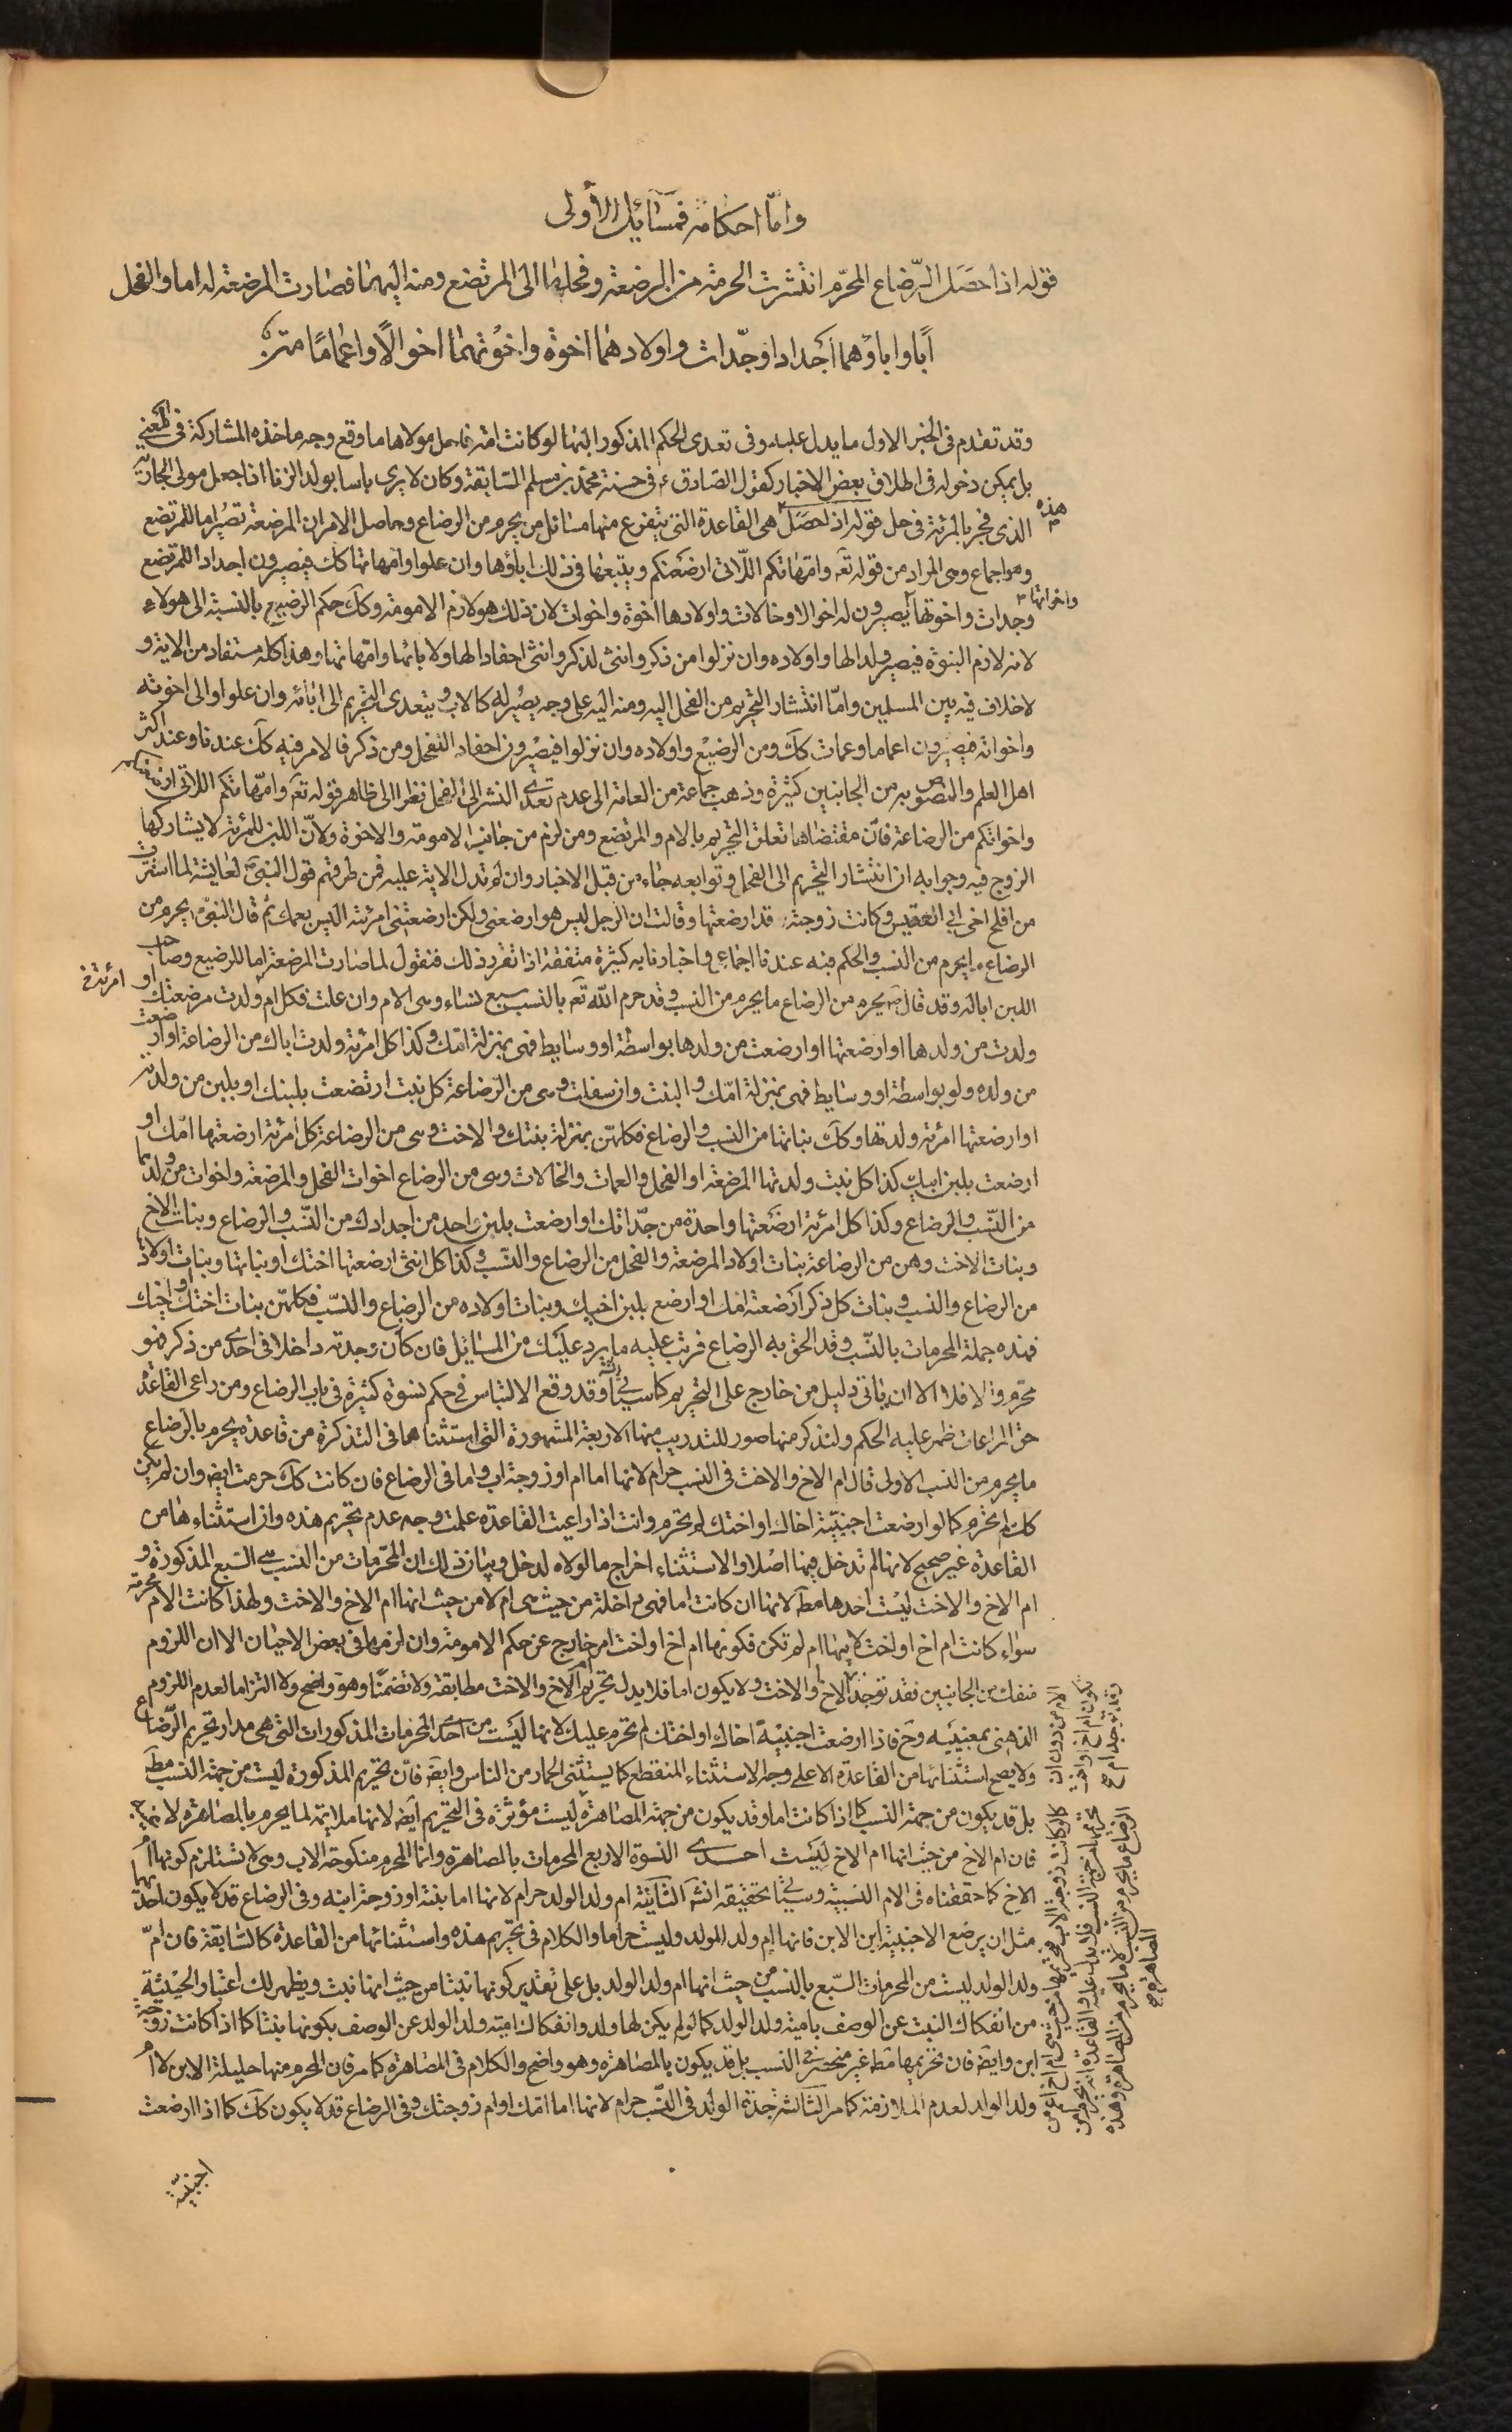 وامّا احكامه فمسائل الأولى
قوله اذا حصل الرّضاع المحرّم انتشرت الحرمة من المرضعة وفحلها الى المرتضع ومنه اليهما فصارت المرضعة له اما والفحل
أبا واباؤهما اجدادا وجدّات واولادهما اخوة واخوتهما اخوالًا واعمامًا
وقد تقدم فى الخبر الاول ما يدل عليه وفى تعدى الحكم المذكور اليهما لو كانت امة فاحل مولاها ما وقع وجه ماخذه المشاركة فى المعنى
بل يمكن دخوله فى اطلاق بعض الاخبار كقول الصّادق ع فى حسنة محمد بن مسلم السّابقة وكان لا يرى باسا بولد الزنا اذا جعل مولى الجارية
الذى فجر بالمرئة فى حل قوله اذا حصل هذه هى القاعدة التى يتفرع منها مسائل من يحرم من الرضاع وحاصل الامر ان المرضعة تصير اما للمرتضع
وهو اجماع وهى المراد من قوله تع وامّهاتكم اللّاتى ارضعنكم ويتبعها فى ذلك اباؤها وان علوا وامهاتها كك فيصيرون اجدادا للمرتضع
وجدات واخوتها واخواتها يصيرون له اخوالا وخالات واولادها اخوة واخوات لان ذلك هو لازم الامومة وكك حكم الرضيع بالنسبة الى هولاء
لانه لازم البنوة فيصير ولدا لها واولاده وان نزلوا من ذكر وانثى لذكر وانثى احفادا لها ولابائها وامّهاتها وهذا كله مستفاد من الاية و
لا خلاف فيه بين المسلمين وامّا انتشار التحريم من الفحل اليه ومنه اليه على وجه يصير له كالاب ويتعدى التحريم الى ابائه وان علوا والى اخوته
واخواته فيصيرون اعماما وعمات كك ومن الرضيع واولاده وان نزلوا فيصيرون احفاد الفحل ومن ذكر فالامر فيه كك عندنا وعند اكثر
اهل العلم والنصوص به من الجانبين كثيرة وذهب جماعة من العامة الى عدم تعدى النشر الى الفحل نظرا الى ظاهر قوله تع وامّهاتكم اللاتى ارضعنكم
واخواتكم من الرضاعة فان مقتضاها تعلق التحريم بالام والمرتضع ومن لزم من جانب الامومة والاخوة ولانّ اللبن للمرئة لا يشاركها
الزوج فيه وجوابه ان انتشار التحريم الى الفحل وتوابعه جاء من قبل الاخبار وان لم تدل الاية عليه فمن طرقهم قول النبى ص لعايشة لما استترت
من افلح اخى ابى القعيس وكانت زوجته قد ارضعتها وقالت ان الرجل ليس هو ارضعنى ولكن ارضعتنى امرئته اليس بعمك ثم قال النبى ص يحرم من
الرضاع ما يحرم من النسب والحكم فيه عندنا اجماعى واخبارنا به كثيرة متفقة اذا تقرر ذلك فنقول لما صارت المرضعة اما للرضيع وصاحب
اللبن ابا له وقد قال ص يحرم من الرضاع ما يحرم من النسب وقد حرم الله تع بالنسب سبع نساء وهى الام وان علت فكل ام ولدت مرضعتك او
امرئة خ
ولدت من ولدها او ارضعتها او ارضعت من ولدها بواسطة او وسايط فهى بمنزلة امّك وكذا كل امرئة ولدت اباك من الرضاعة او ارضعت
من ولده ولو بواسطة او وسايط فهى بمنزلة امّك والبنت وان سفلت وهى من الرّضاعة كل بنت ارتضعت بلبنك او بلبن من ولدته
او ارضعتها امرئة ولدتها وكك بناتها من النسب والرضاع فكلهنّ بمنزلة بنتك والاخت وهى من الرضاعة كل امرئة ارضعتها امّك او
ارضعت بلبن ابيك وكذا كل بنت ولدتها المرضعة او الفحل والعمات والخالات وهى من الرضاع اخوات الفحل والمرضعة واخوات من ولدهما
من النّسب والرضاع وكذا كل امرئة ارضعتها واحدة من جدّاتك او ارضعت بلبن واحد من اجدادك من النّسب والرضاع وبنات الاخ
وبنات الاخت وهن من الرضاعة بنات اولاد المرضعة والفحل من الرضاع والنّسب وكذا كل انثى ارضعتها اختك او بناتها وبنات اولادها
من الرضاع والنسب وبنات كل ذكر ارضعته امك او ارضع بلبن اخيك وبنات اولاده من الرضاع والنسب فكلهنّ بنات اختك واخيك
فهذه جملة المحرمات بالنّسب وقد الحق به الرضاع فرتب عليه ما يرد عليك من المسائل فان كان وجدته داخلا فى احدى من ذكر فهو
محرّم والا فلا الا ان ياتى دليل من خارج على التحريم كما سيأتى انش وقد وقع الالتباس فى حكم نسوة كثيرة فى باب الرضاع ومن راعى القاعدة
حق المراعات ظهر عليه الحكم ولنذكر منها صور للتدريب منها الاربعة المشهورة التى استثناها فى التذكرة من قاعدة يحرم بالرّضاع
ما يحرم من النسب الاولى قال ام الاخ والاخت فى النسب حرام لانها اما ام او زوجة اب واما فى الرضاع فان كانت كك حرمت ايض وان لم يكن
كك لم تحرم كما لو ارضعت اجنبيّة اخاك او اختك لم تحرم وانت اذا راعيت القاعدة علمت وجه عدم تحريم هذه وان استثناءها من
القاعدة غير صحيح لانها لم تدخل فيها اصلا والاستثناء اخراج ما لولاه لدخل وبيان ذلك ان المحرّمات من النسب هى السّبع المذكورة و
ام الاخ والاخت ليست احدها مط لانها ان كانت اما فهى داخلة من حيث هى ام لا من حيث انها ام الاخ والاخت ولهذا كانت الام محرمة
سواء كانت ام اخ او اخت لابيها ام لم تكن فكونها ام اخ او اخت امر خارج عن حكم الامومة وان لزمها فى بعض الاحيان الا ان اللزوم
منفك من الجانبين فقد توجد ام الاخ والاخت ولا يكون اما فلا يدل تحريم ام الاخ والاخت مطابقة ولا تضمّنا وهو واضح ولا التزاما لعدم اللزوم
الذهنى بمعنييه وح فاذا ارضعت اجنبيّة اخاك او اختك لم تحرم عليك لانها ليست من احدى المحرمات المذكورات التى هى مدار تحريم الرّضاع
ولا يصح استثنائها من القاعدة الا على وجه الاستثناء المنقطع كما يستثنى الحمار من الناس وايض فان تحريم المذكورة ليست من جهة النسب مط
بل قد يكون من جهة النسب كما اذا كانت اما وقد يكون من جهة المصاهرة ليست مؤثرة فى التحريم ايض لانها ملازمة لما يحرم بالمصاهرة لا نفسها
فان ام الاخ من حيث انها ام الاخ ليست احدى النسوة الاربع المحرمات بالمصاهرة وانما المحرم منكوحة الاب وهى لا تستلزم كونها ام
الاخ كما حققناه فى الام النسبيّة وسيأتى تحقيقه انش الثانية ام ولد الولد حرام لانها اما بنته او زوجة ابنه وفى الرضاع قد لا يكون احدهما
مثل ان يرضع الاجنبيّة ابن الابن فانها ام ولد الولد وليست حراما والكلام فى تحريم هذه واستثنائها من القاعدة كالسّابقة فان امّ
ولد الولد ليست من المحرمات السّبع بالنسب من حيث انها ام ولد الولد بل على تقدير كونها بنتا من حيث انها بنت ويظهر لك اعتبار الحيثية
من انفكاك البنت عن الوصف باميّة ولد الولد كما لو لم يكن لها ولد وانفكاك اميّة ولد الولد عن الوصف بكونها بنتا كما اذا كانت زوجة
ابن وايض فان تحريمها مط غير منحصر فى النسب بل قد يكون بالمصاهرة وهو واضح والكلام فى المصاهرة كما مر فان المحرم منها حليلة الابن لا ام
ولد الولد لعدم الملازمة كما مر الثالثة جدّة الولد فى النّسب حرام لانها اما امّك او ام زوجتك وفى الرضاع قد لا يكون كك كما اذا ارضعت
اجنبيّة